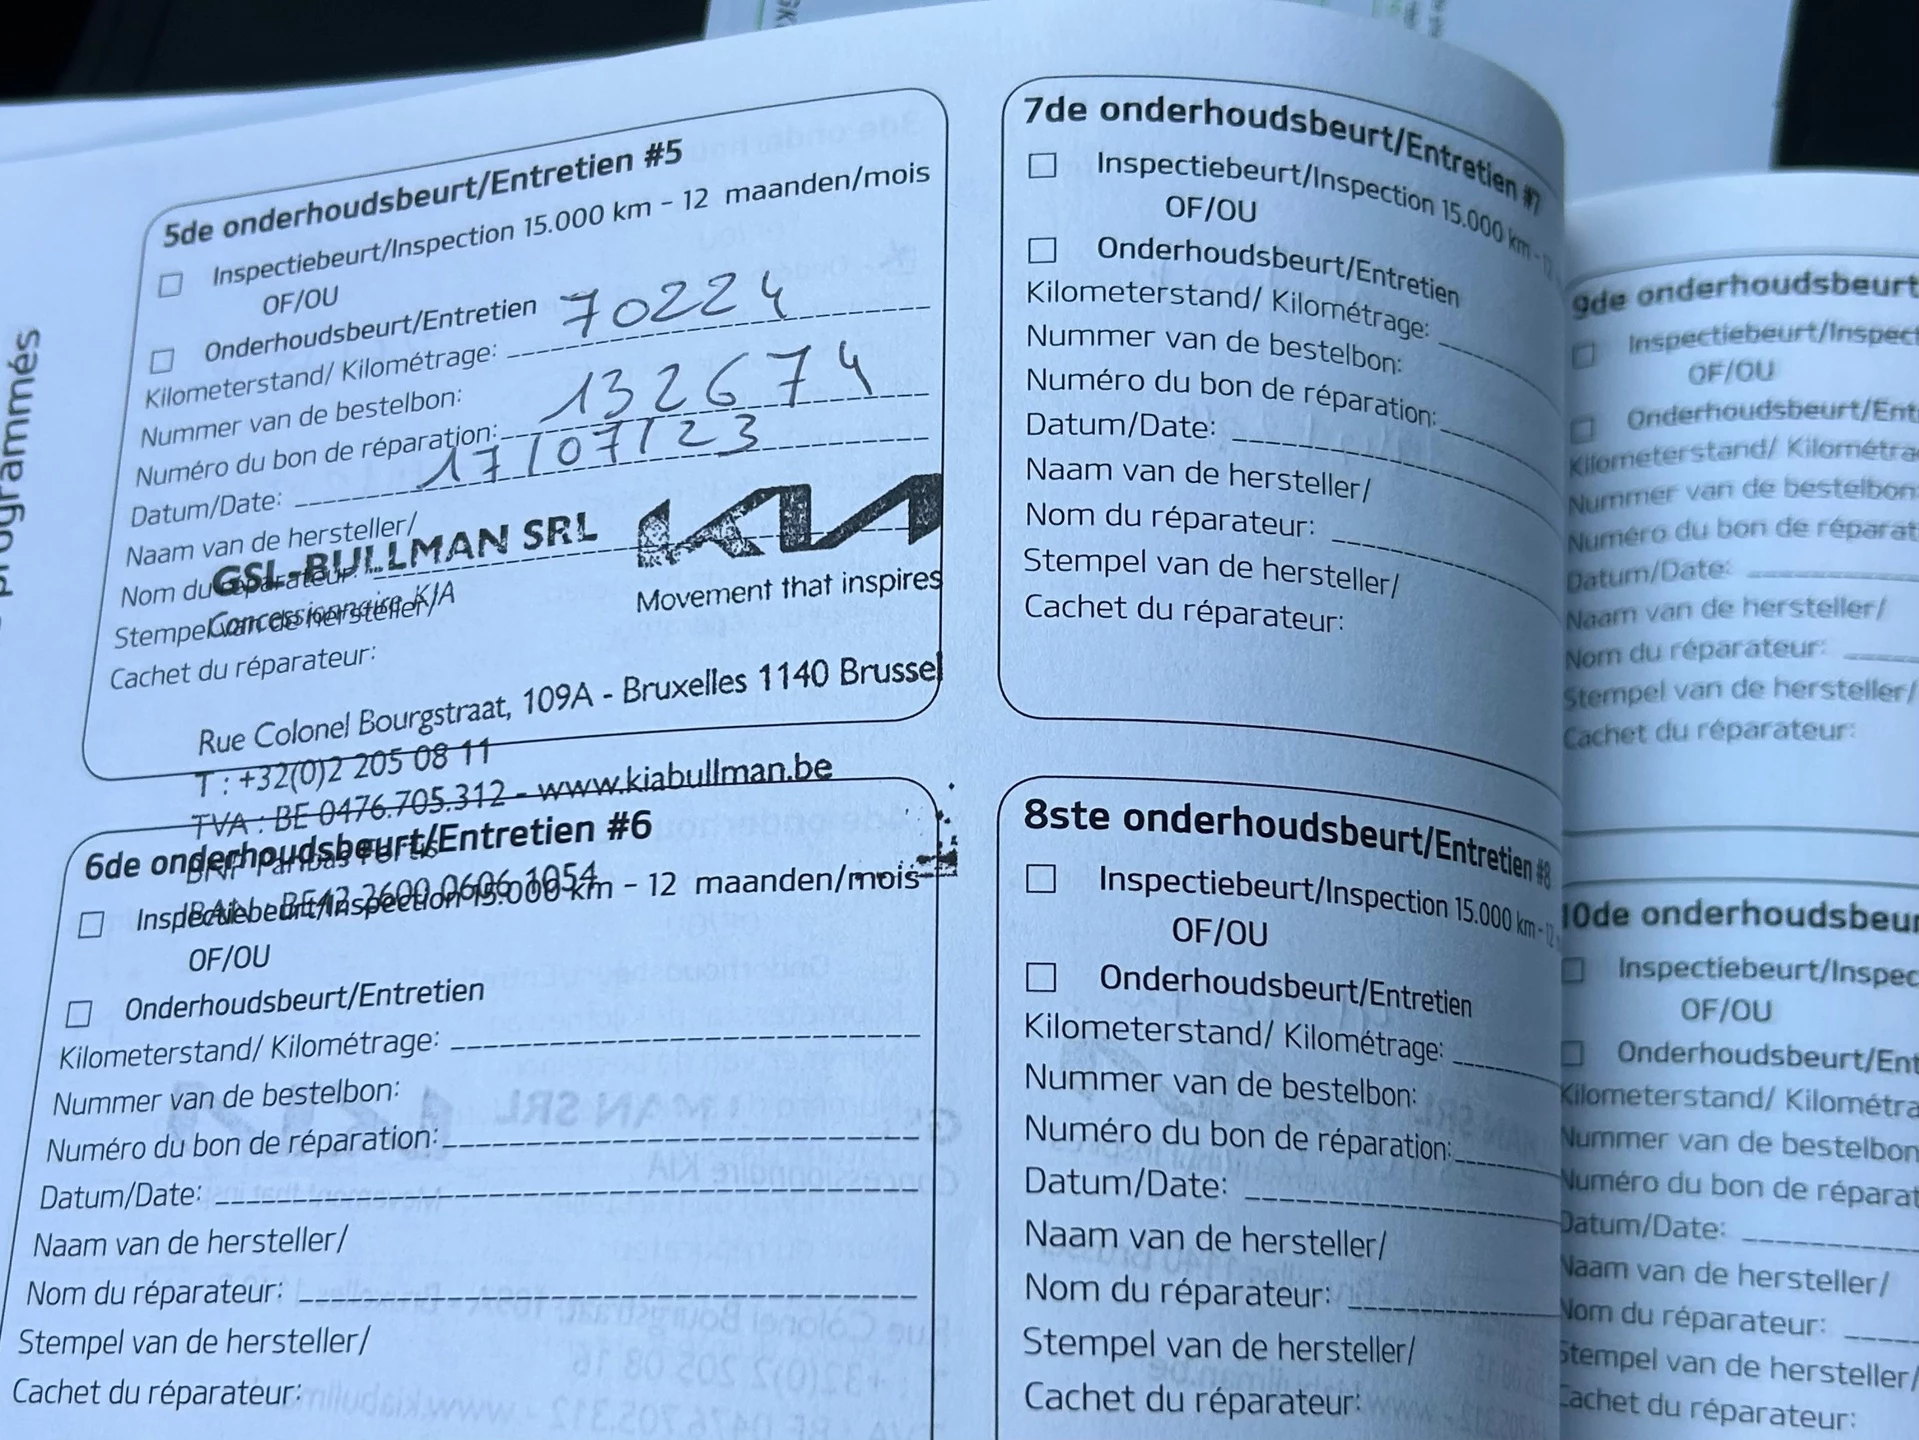 programmés
5de onderhoudsbeurt/Entretien #5
Inspectiebeurt/Inspection 15.000 km – 12 maanden/mois
OF/OU
Onderhoudsbeurt/Entretien
Kilometerstand/ Kilométrage: 70224
Nummer van de bestelbon:
Numéro du bon de réparation: 132674
Datum/Date: 17/07/23
Naam van de hersteller/
Nom du réparateur:
Stempel van de hersteller/
Cachet du réparateur:
GSL-BULLMAN SRL
Concessionnaire KIA
KIA
Movement that inspires
Rue Colonel Bourgstraat, 109A - Bruxelles 1140 Brussel
T : +32(0)2 205 08 11
TVA : BE 0476.705.312 - www.kiabullman.be
BNP Paribas Fortis
IBAN : BE42 2600 0606 1054
6de onderhoudsbeurt/Entretien #6
Inspectiebeurt/Inspection 15.000 km – 12 maanden/mois
OF/OU
Onderhoudsbeurt/Entretien
Kilometerstand/ Kilométrage:
Nummer van de bestelbon:
Numéro du bon de réparation:
Datum/Date:
Naam van de hersteller/
Nom du réparateur:
Stempel van de hersteller/
Cachet du réparateur:
7de onderhoudsbeurt/Entretien #7
Inspectiebeurt/Inspection 15.000 km – 12
OF/OU
Onderhoudsbeurt/Entretien
Kilometerstand/ Kilométrage:
Nummer van de bestelbon:
Numéro du bon de réparation:
Datum/Date:
Naam van de hersteller/
Nom du réparateur:
Stempel van de hersteller/
Cachet du réparateur:
8ste onderhoudsbeurt/Entretien #8
Inspectiebeurt/Inspection 15.000 km – 12
OF/OU
Onderhoudsbeurt/Entretien
Kilometerstand/ Kilométrage:
Nummer van de bestelbon:
Numéro du bon de réparation:
Datum/Date:
Naam van de hersteller/
Nom du réparateur:
Stempel van de hersteller/
Cachet du réparateur:
9de onderhoudsbeurt
Inspectiebeurt/Inspect
OF/OU
Onderhoudsbeurt/Ent
Kilometerstand/ Kilométra
Nummer van de bestelbon
Numéro du bon de réparat
Datum/Date:
Naam van de hersteller/
Nom du réparateur:
Stempel van de hersteller/
Cachet du réparateur:
10de onderhoudsbeur
Inspectiebeurt/Inspec
OF/OU
Onderhoudsbeurt/Ent
Kilometerstand/ Kilométra
Nummer van de bestelbon
Numéro du bon de réparat
Datum/Date:
Naam van de hersteller/
Nom du réparateur:
Stempel van de hersteller/
Cachet du réparateur: